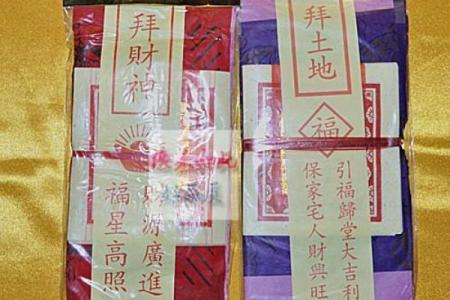 拜財神
財源廣進
福星高照
拜土地
福
引福歸堂大吉利
保家宅人財興旺